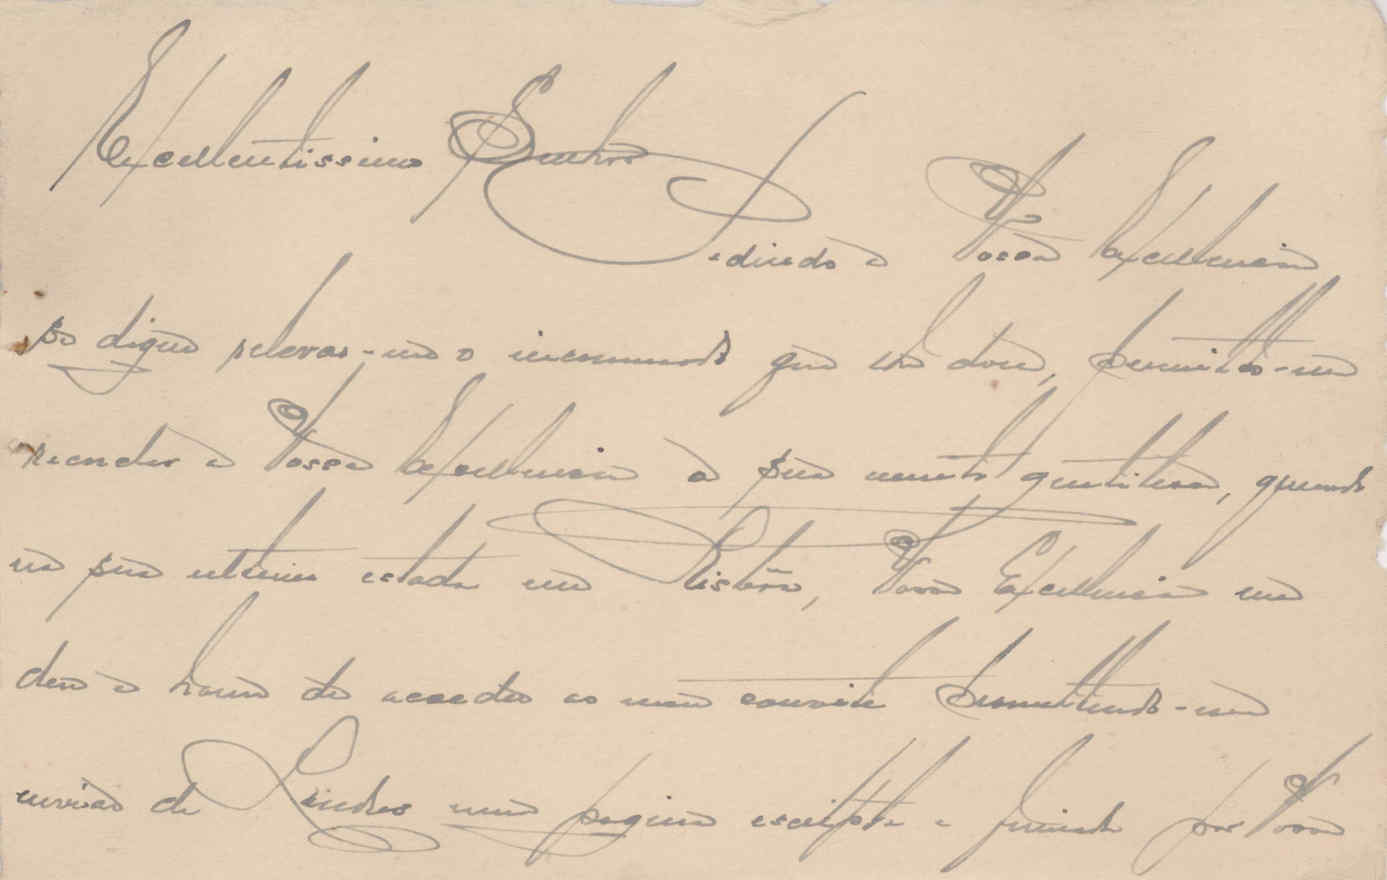 Excellentissimo Senhor
Pedindo a Vossa Excellencia
se digne relevar-me o incommodo que lhe dou, permitto-me
recordar a Vossa Excellencia a sua muito gentileza, quando
na sua ultima estada em Lisbôa, Vossa Excellencia me
deu a honra de acceder ao meu convite promettendo-me
enviar de Londres uma pagina escripta e firmada por Vossa